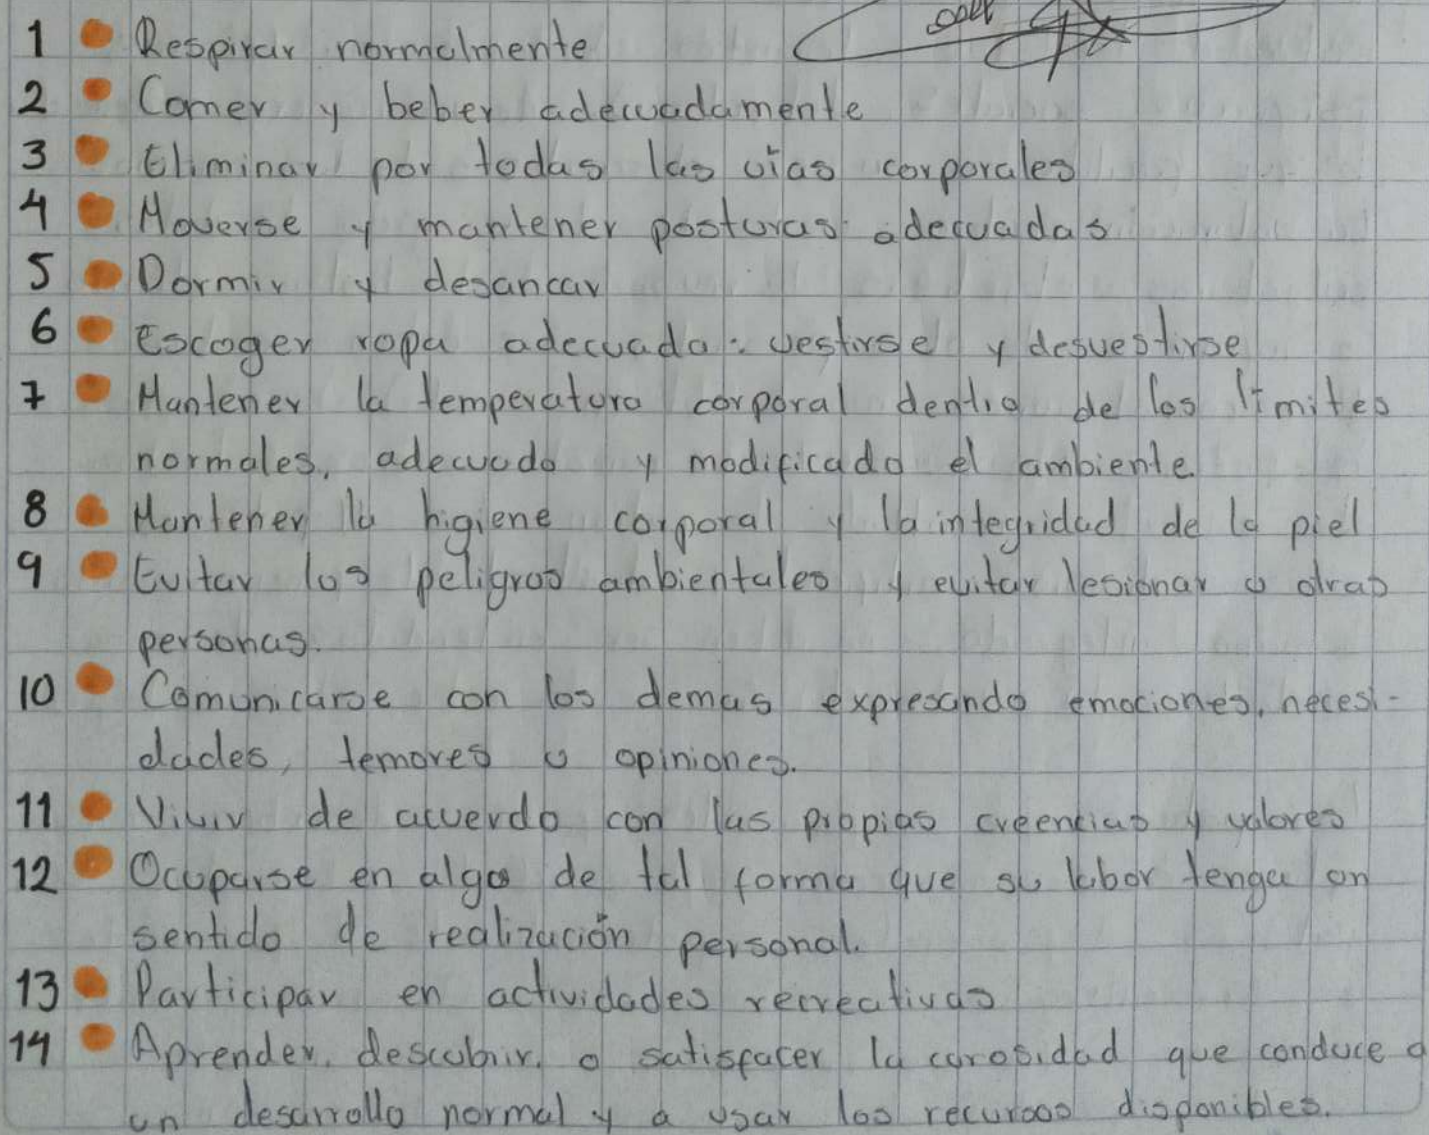 1 Respirar normalmente
2 Comer y beber adecuadamente
3 Eliminar por todas las vías corporales
4 Moverse y mantener posturas adecuadas
5 Dormir y desancar
6 Escoger ropa adecuada: vestirse y desvestirse
7 Mantener la temperatura corporal dentro de los límites
normales, adecuado y modificado el ambiente
8 Mantener la higiene corporal y la integridad de la piel
9 Evitar los peligros ambientales y evitar lesionar a otras
personas.
10 Comunicarse con los demas expresando emociones, necesi-
dades, temores u opiniones.
11 Vivir de acuerdo con las propias creencias y valores
12 Ocuparse en algo de tal forma que su labor tenga un
sentido de realización personal.
13 Participar en actividades recreativas
14 Aprender, descubrir, o satisfacer la curosidad que conduce a
un desarrollo normal y a usar los recursos disponibles.